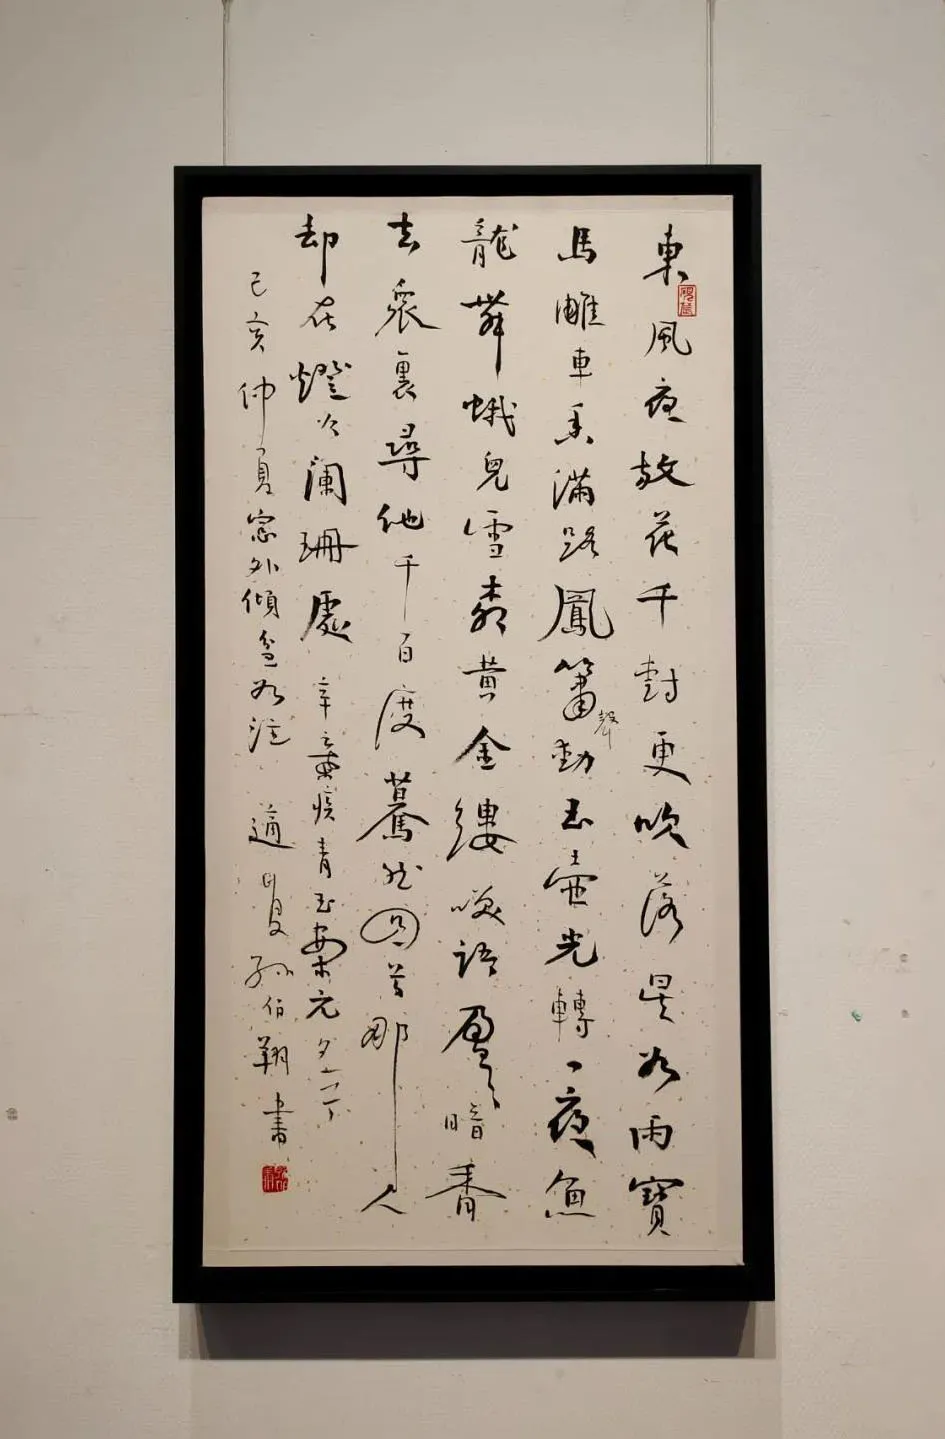 東風夜放花千樹更吹落星如雨寶
馬雕車香滿路鳳簫聲動玉壺光轉一夜魚
龍舞蛾兒雪柳黃金縷笑語盈盈暗香
去衆裏尋他千百度驀然回首那人
却在燈火闌珊處 辛棄疾青玉案元夕
己亥仲夏窓外傾盆如注 孫伯翔書